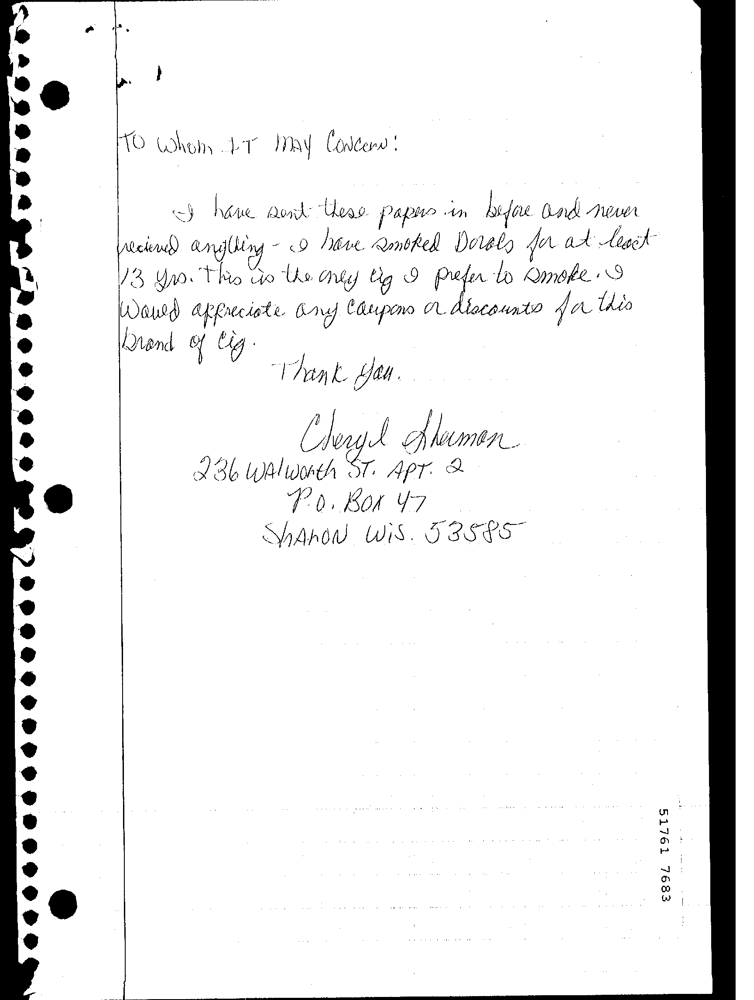 To Whom IT MAY Concern:
I have sent these papers in before and never
recieved anything - I have smoked Dorals for at least
13 yrs. This is the only cig I prefer to smoke. I
Would appreciate any coupons or discounts for this
brand of Cig.
Thank You.
Cheryl Sherman
236 WAlworth ST. APT. 2
P.O. BOX 47
ShARON Wis. 53585
51761 7683